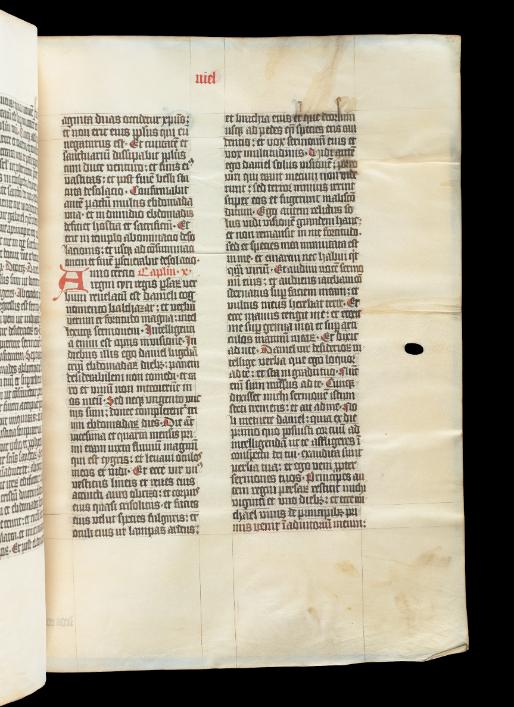 niel
aginta duas occidetur xpus:
et non erit eius pplus qui eū
negaturus est. Et ciuitatē et
sanctuariū dissipabit pplus
cum duce venturo: et finis ei9
vastitas: et post finē belli sta
tuta desolatio. Confirmabit
autē pactū multis ebdomada
una: et in dimidio ebdomadis
deficiet hostia et sacrificiū. Et
erit in templo abominatio deso
lationis: et usqȝ ad cōsummatio
nem et finē pseuerabit desolatio.
Anno tercio Capłm . x .
regni cyri regis psaȝ ver
bum reuelatū est danieli cog
nomento balthazar: et verbū
verum et fortitudo magna: intel
lexitqȝ sermonem. Intelligētia
ē enim est opus in visione. In
diebus illis ego daniel lugebā
triū ebdomadaȝ diebȝ: panem
desiderabilem non comedi: et ca
ro et vinū non introierunt in
os meū. Sed neqȝ vnguento vnc
tus sum: donec complerent̄ tri
um ebdomadaȝ dies. Die aūt
vicesima et quarta mensis pri
mi eram iuxta fluuiū magnū
qui est tygris: et leuaui oculos
meos et vidi. Et ecce vir vn9
vestitus lineis et renes eius
accincti auro obrizo: et corpus
eius quasi crisolitus: et facies
eius velut species fulguris: et
oculi eius ut lampas ardens:
et brachia eius et que deorsum
usqȝ ad pedes q̄si species eris can
dentis: et vox sermonū eius ut
vox multitudinis. Vidi autē
ego daniel solus visionē: porro
viri qui erant mecum non vide
runt: sed terror nimius irruit
super eos et fugerunt in absco
ditum. Ego autem relictus so
lus vidi visionē grandem hanc:
et non remansit in me fortitudo.
sed et species mea immutata est
in me: et emarcui nec habui q̄c
q̄m viriū. Et audiui vocē sermo
nū eius: et audiens iacebam cō
sternatus sup faciem meam: et
vultus meus herebat terre. Et
ecce manus tetigit me: et erexit
me sup genua mea et sup arti
culos manuū meaȝ. Et dixit
ad me. Daniel vir desideriorȝ in
tellige verba que ego loquor
ad te: et sta in gradu tuo. Nūc
eni sum missus ad te. Cumqȝ
dixisset michi sermonē istum
steti tremens: et ait ad me. No
li metuere daniel: quia ex die
primo quo posuisti cor tuū ad
intelligendū ut te affligeres ī
conspectu dei tui: exaudita sunt
verba tua: et ego veni ppter
sermones tuos. Princeps au
tem regni psaȝ restitit michi
viginti et uno diebȝ: et ecce mi
chael vnus de principibȝ pri
mis venit ī adiutoriū meum: